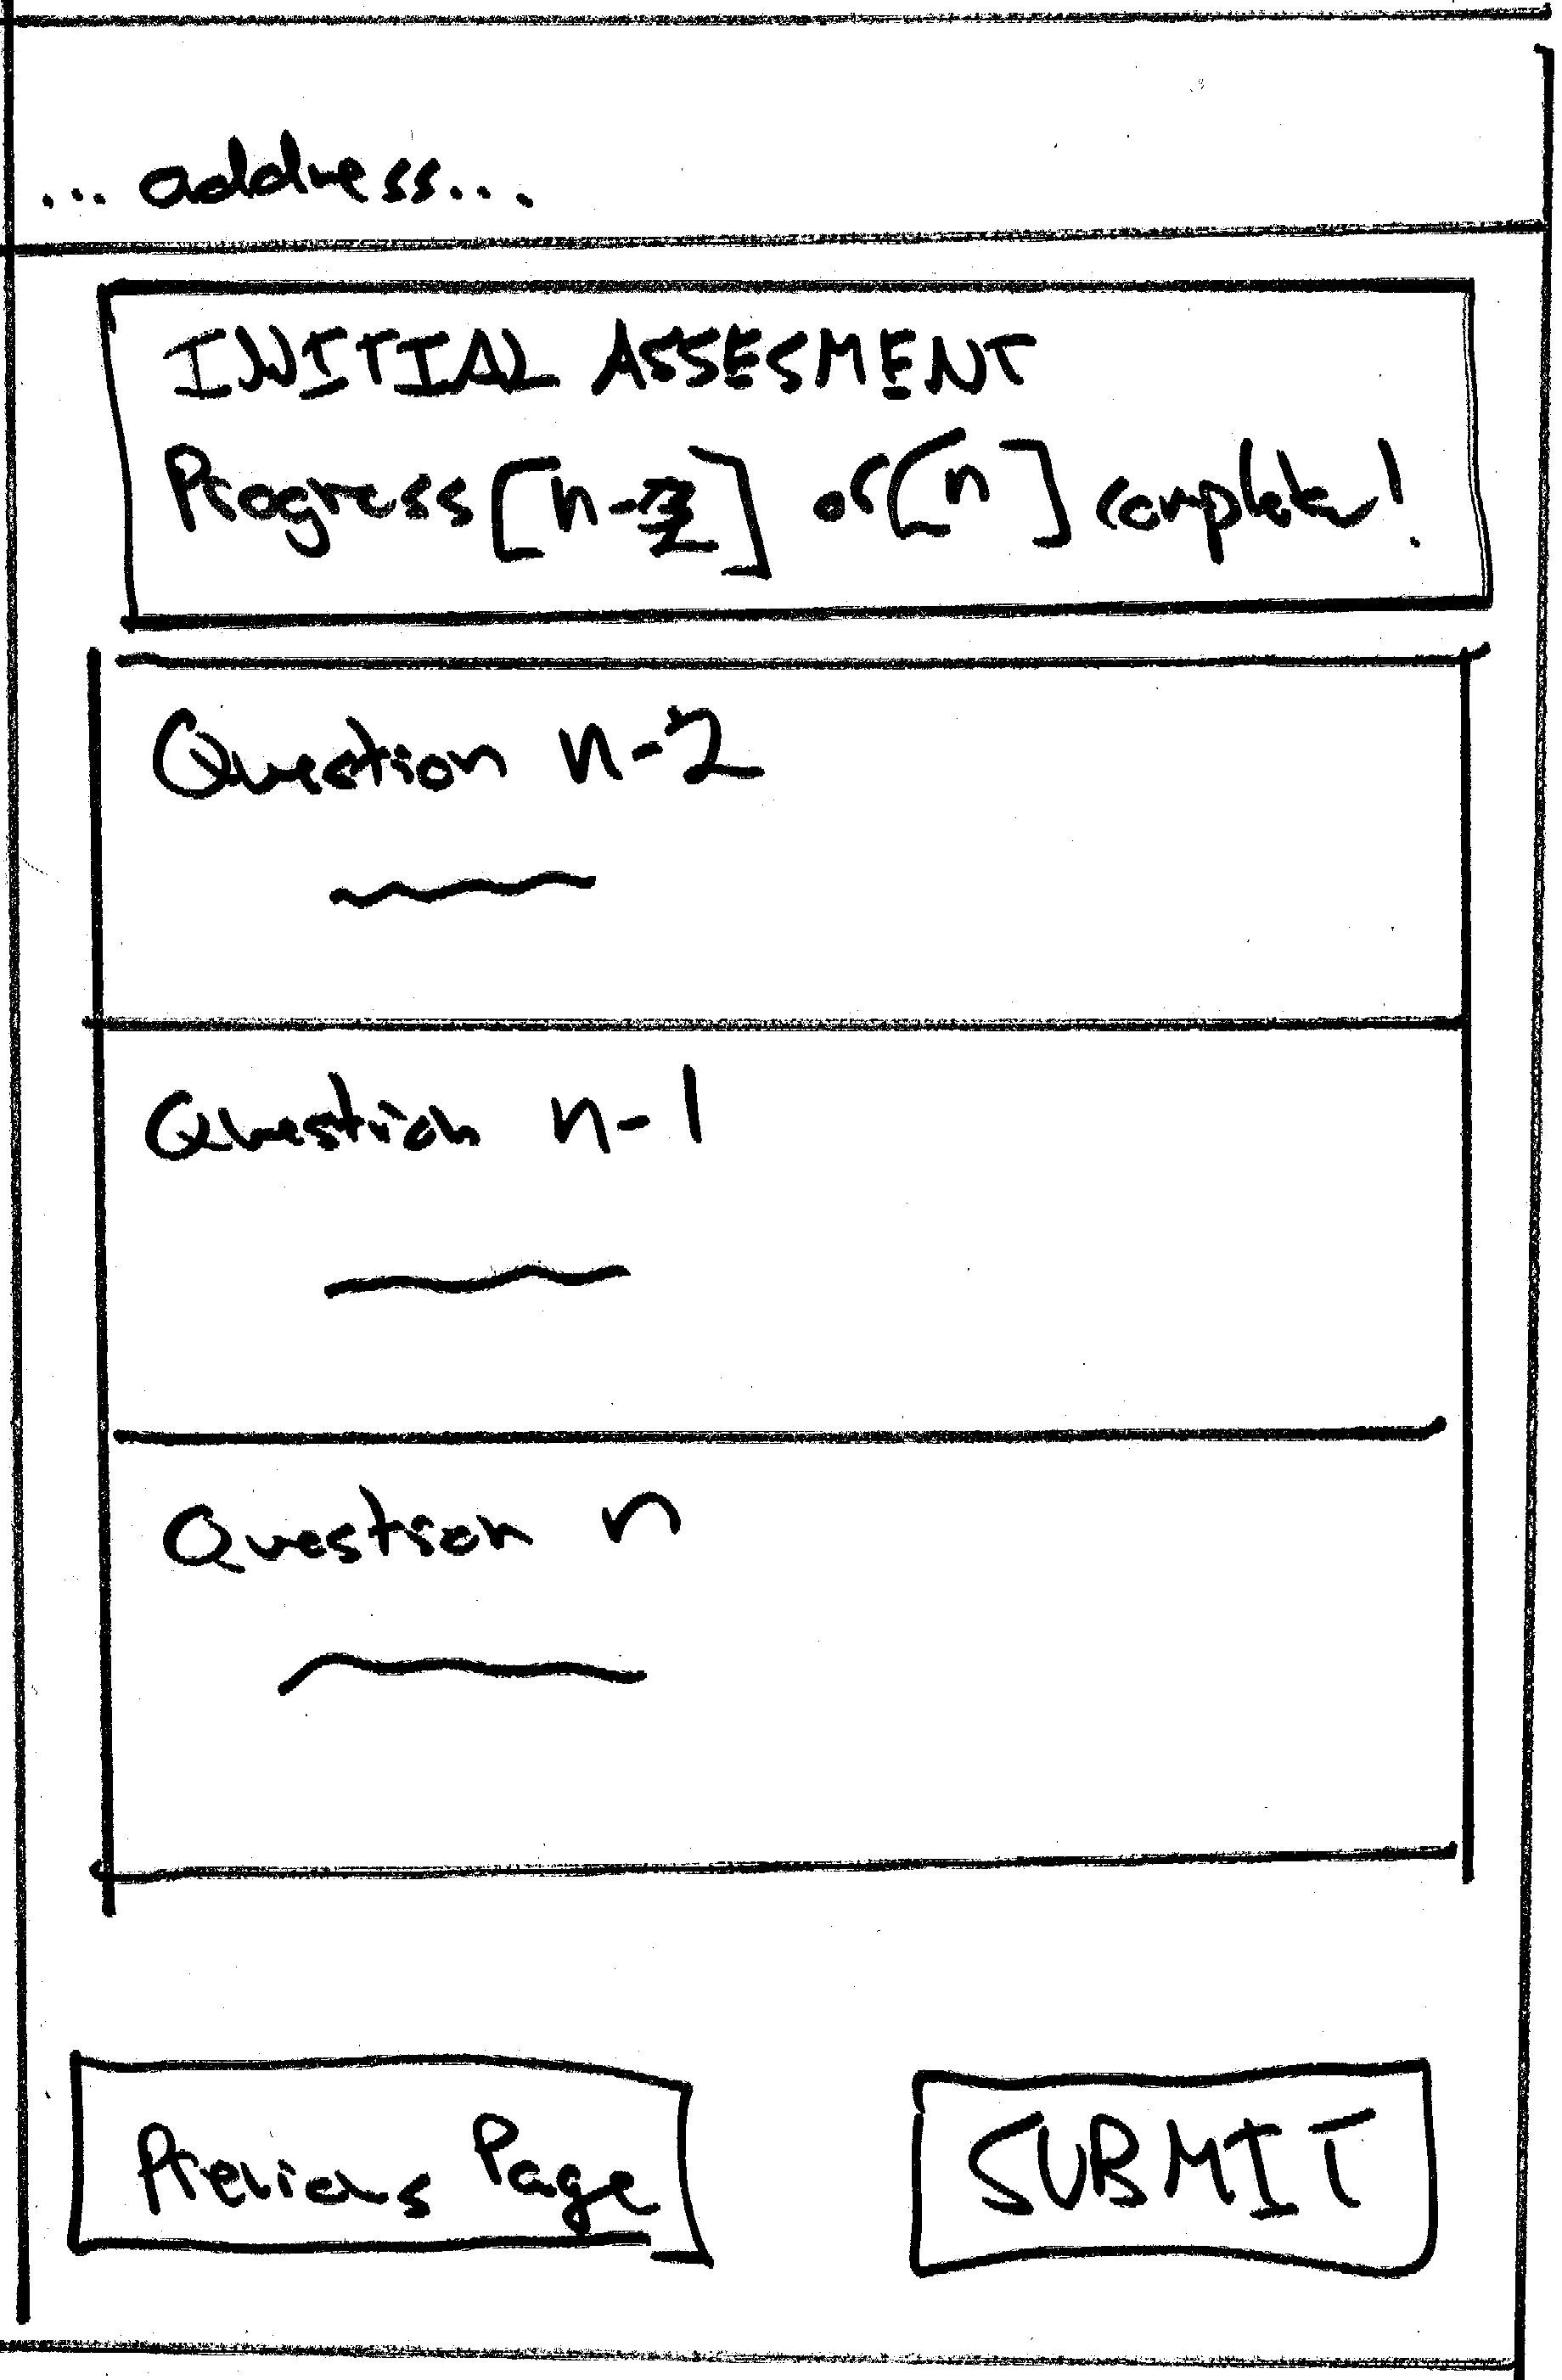 ... address...
INITIAL ASSESMENT
Progress [n-2] of [n] complete!
Question n-2
Question n-1
Question n
Previous Page
SUBMIT